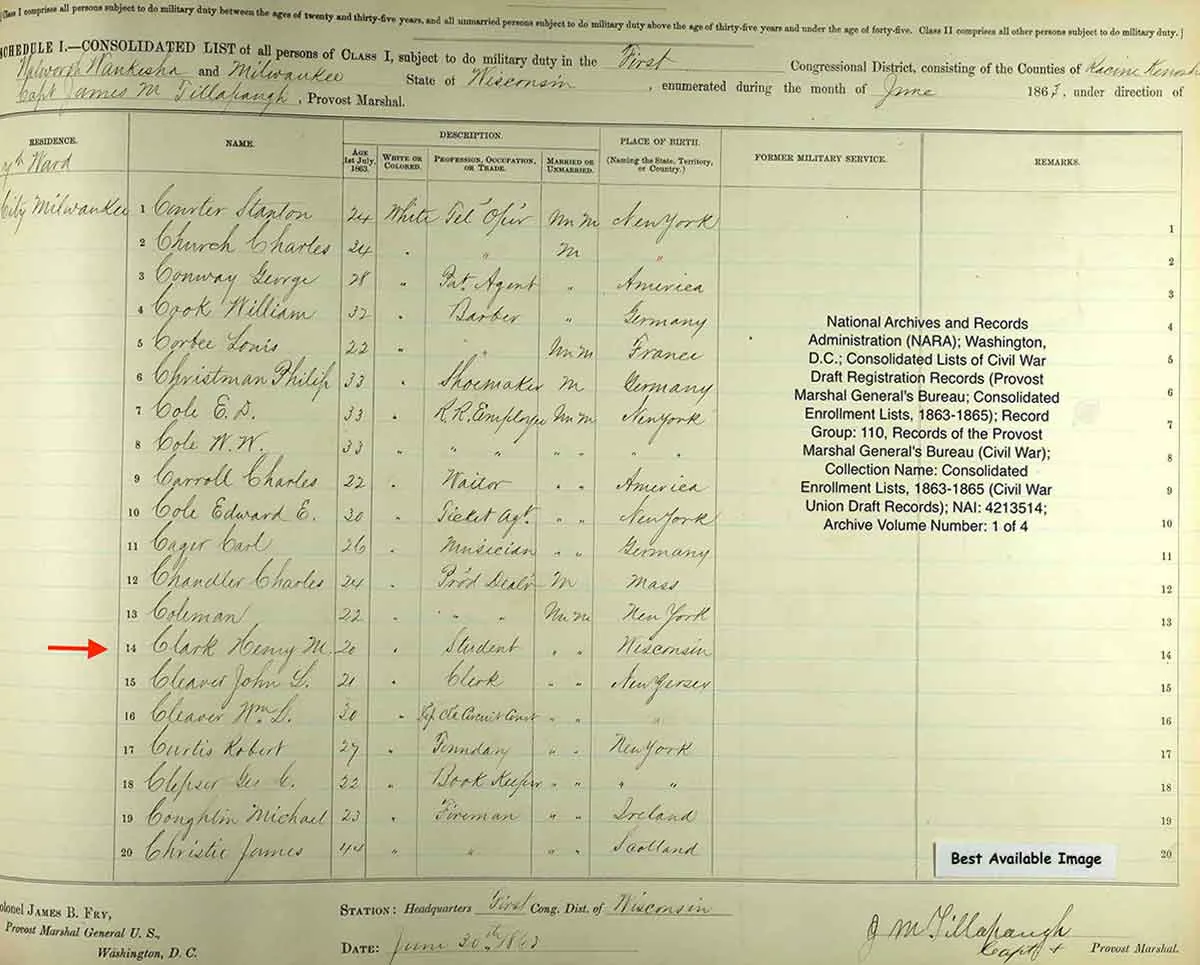 [Class I comprises all persons subject to do military duty between the ages of twenty and thirty-five years, and all unmarried persons subject to do military duty above the age of thirty-five years and under the age of forty-five. Class II comprises all other persons subject to do military duty.]
SCHEDULE I.—CONSOLIDATED LIST of all persons of CLASS I, subject to do military duty in the First Congressional District, consisting of the Counties of Racine Kenosh
Walworth Waukesha and Milwaukee State of Wisconsin, enumerated during the month of June 1863, under direction of
Capt James M Tillapaugh, Provost Marshal.
RESIDENCE. NAME. DESCRIPTION. PLACE OF BIRTH. (Naming the State, Territory, or Country.) FORMER MILITARY SERVICE. REMARKS.
AGE 1st July, 1863. WHITE OR COLORED. PROFESSION, OCCUPATION, OR TRADE. MARRIED OR UNMARRIED.
7th Ward
City Milwaukee 1 Courter Stanton 24 White Tel Oper Un M New York 1
2 Church Charles 24 " " M " 2
3 Conway George 28 " Pat. Agent " America 3
4 Cook William 32 " Barber " Germany 4
5 Corbee Louis 22 " " Un M France 5
6 Christman Philip 33 " Shoemaker M Germany 6
7 Cole E. D. 33 " R.R. Employee Un M New York 7
8 Cole W. W. 33 " " " " " " " " 8
9 Carroll Charles 22 " Waitor " " America 9
10 Cole Edward E. 30 " Ticket Agt. " " New York 10
11 Cager Carl 26 " Musician " " Germany 11
12 Chandler Charles 24 " Prod Dealr M Mass 12
13 Coleman 22 " " " " Un M New York 13
14 Clark Henry M. 20 " Student " " Wisconsin 14
15 Cleaver John L. 21 " Clerk " " New Jersey 15
16 Cleaver Wm L. 30 " Clk Circuit Court " " " 16
17 Curtis Robert 27 " " " New York 17
18 Geo C. 22 " Book Keeper " " " " 18
19 Coughlin Michael 23 " Fireman " " Ireland 19
20 Christie James 44 " " " " Scotland 20
National Archives and Records
Administration (NARA); Washington,
D.C.; Consolidated Lists of Civil War
Draft Registration Records (Provost
Marshal General's Bureau; Consolidated
Enrollment Lists, 1863-1865); Record
Group: 110, Records of the Provost
Marshal General's Bureau (Civil War);
Collection Name: Consolidated
Enrollment Lists, 1863-1865 (Civil War
Union Draft Records); NAI: 4213514;
Archive Volume Number: 1 of 4
Best Available Image
olonel JAMES B. FRY,
Provost Marshal General U. S.,
Washington, D. C.
STATION: Headquarters First Cong. Dist. of Wisconsin
DATE: June 30th 1863
J M Tillapaugh
Capt & Provost Marshal.